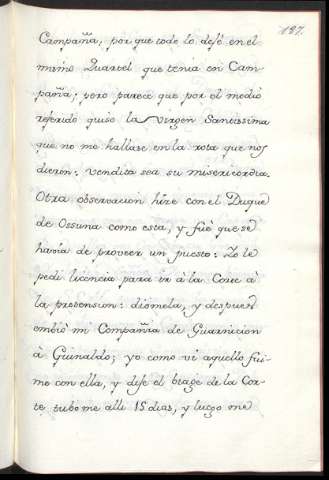 197.
Campaña; por que todo lo dejé en el
mismo Quartel que tenia en Cam-
paña; pero parece que por el medio
referido quiso la Virgen Santissima
que no me hallase en la rota que nos
dieron: vendita sea su misericordia.
Otra observacion hize con el Duque
de Ossuna como esta, y fuè que se
havia de proveer un puesto: Yo le
pedi licencia para ir à la Corte à
la pretension: diòmela, y despues
embiò mi Compañia de Guarnicion
à Guinaldo; yo como vi aquello fui-
me con ella, y dejé el biage de la Cor-
te tubome alli 15 dias, y luego me